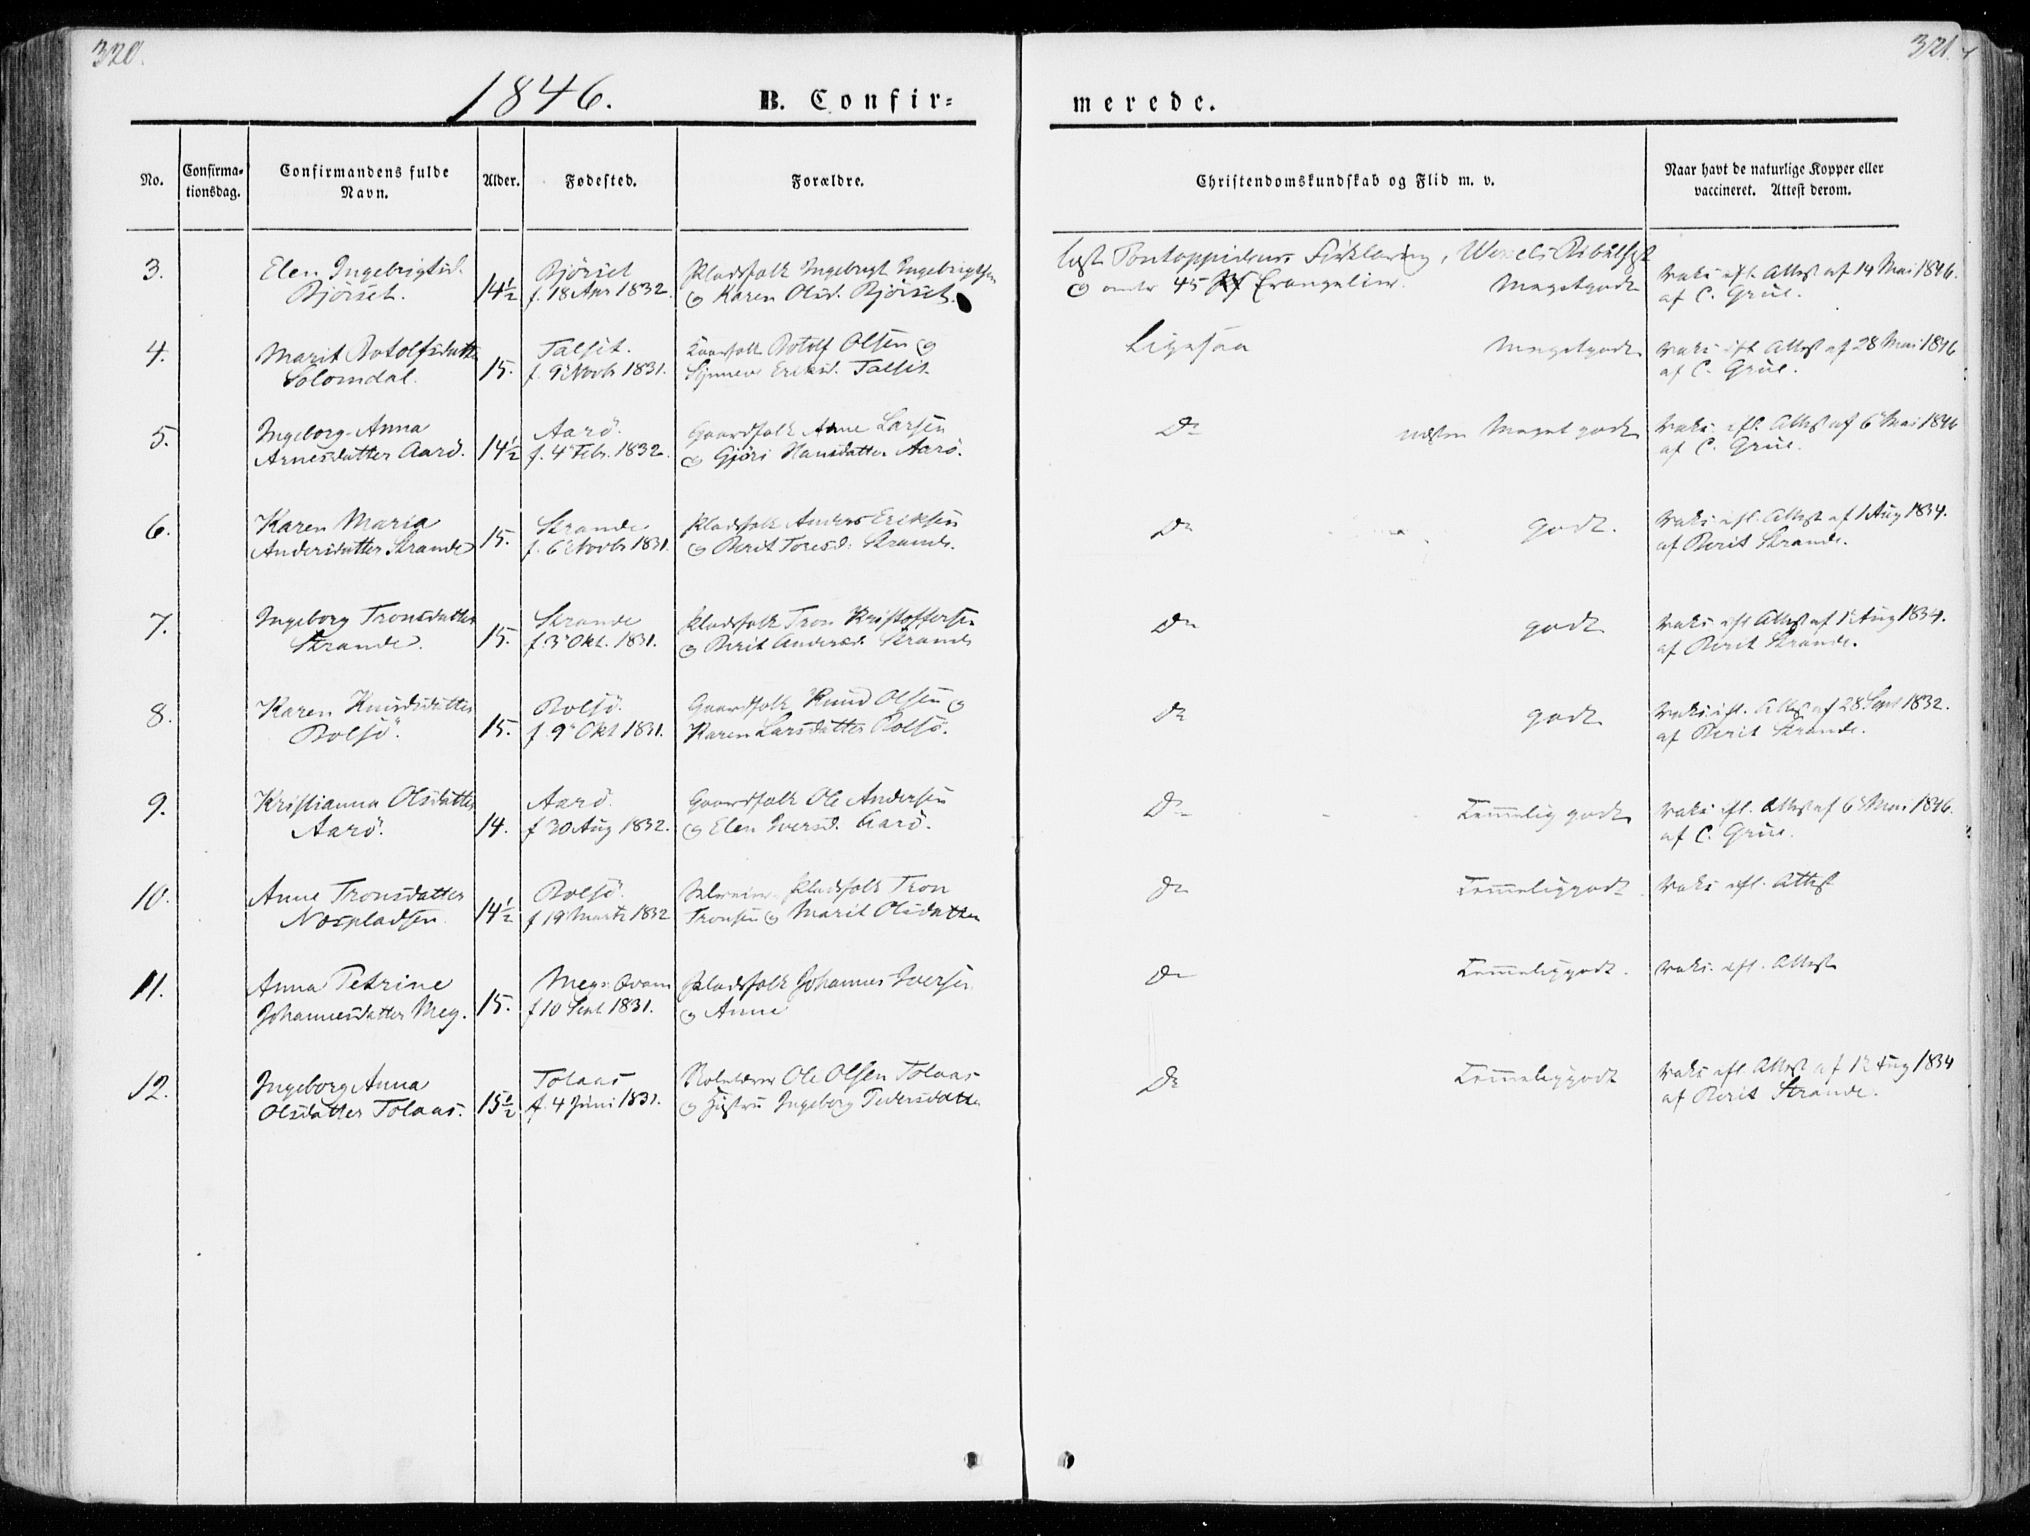 320.
321.
1846.
B. Confir=
merede.
No.
Confirma=
tionsdag.
Confirmandens fulde
Navn.
Alder.
Fødested.
Forældre.
Christendomskundskab og Flid m. v.
Naar havt de naturlige Kopper eller
vaccineret. Attest derom.
3.
Elen Ingebrigtsd.
Bjørset.
14½
Bjørset
f. 18 Apr 1832.
Pladsfolk Ingebrigt Ingebrigtsen
og Karen Olsd. Bjørset.
læst Pontoppidans Forklaring,
og 45 Evangelier. Megetgodt
Vaks. eft. Attest af 14 Mai 1846.
af C. Grüe.
4.
Marit Botolfsdatter
Solomdal.
15.
Talsit.
f. 9 Novb 1831.
Botolf Olsen og
Synneve Eriksd. Talsit.
Ligesaa
Megetgodt
Vaks. eft. Attest af 28 Mai 1846
af C. Grüe.
5.
Ingeborg Anna
Arnesdatter Aarö.
14½
Aarö.
f. 4 Febr. 1832.
Gaardfolk Arne Larsen
og Gjöri Hansdatter Aarö.
Do
næsten Meget godt
Vaks. eft. Attest af 6 Mai 1846
af C. Grüe.
6.
Karen Maria
Andersdatter Strande
15.
Strande
f. 6 Novb 1831.
Pladsfolk Anders Eriksen
og Berit Toresd. Strande.
Do
godt.
Vaks. eft. Attest af 1 Aug 1834.
af Berit Strande.
7.
Ingeborg Tronsdatter
Strande.
15.
Strande
f. 3 Okt. 1831.
Pladsfolk Tron Kristoffersen
og Berit Andersd. Strande
Do
godt
Vaks. eft. Attest af 1 Aug 1834.
af Berit Strande.
8.
Karen Knudsdatter
Bolsö.
15.
Bolsö.
f. 9 Okt 1831.
Gaardfolk Knud Olsen og
Karen Larsdatter Bolsö.
Do
godt
Vaks. eft. Attest af 28 Sept 1832.
af Berit Strande.
9.
Kristianna Olsdatter
Aarö.
14.
Aarö.
f 30 Aug 1832.
Gaardfolk Ole Andersen
og Elen Iversd. Aarö.
Do
Temmelig godt
Vaks. eft. Attest af 6 Mai 1846.
af C. Grüe.
10.
Anne Tronsdatter
Næspladsen
14½
Bolsö
f 19 Marts 1832
Pladsfolk Tron
Tronsen og Marit Olsdatter
Do
Temmeliggodt
Vaks eft. Attest
11.
Anna Petrine
Johannesdatter Meg.
15.
f 10 Sept 1831.
Pladsfolk Johannes Iversen
og Anne
Do
Temmeliggodt.
Vaks. eft. Attest
12.
Ingeborg Anna
Olsdatter Tolaas.
15½
Tolaas
f. 4 Juni 1831.
Ole Olsen Tolaas
og Hustru Ingeborg Pedersdatter
Do
Temmeliggodt
Vaks eft. Attest af 12 Aug 1834
af Berit Strande.